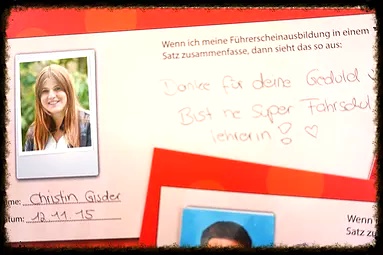 Wenn ich meine Führerscheinausbildung in einem
Satz zusammenfasse, dann sieht das so aus:
Danke für deine Geduld
Bist ne super Fahrschul
lehrerin
me: Christin Gisder
tum: 12.11.15
Wenn
Satz zu